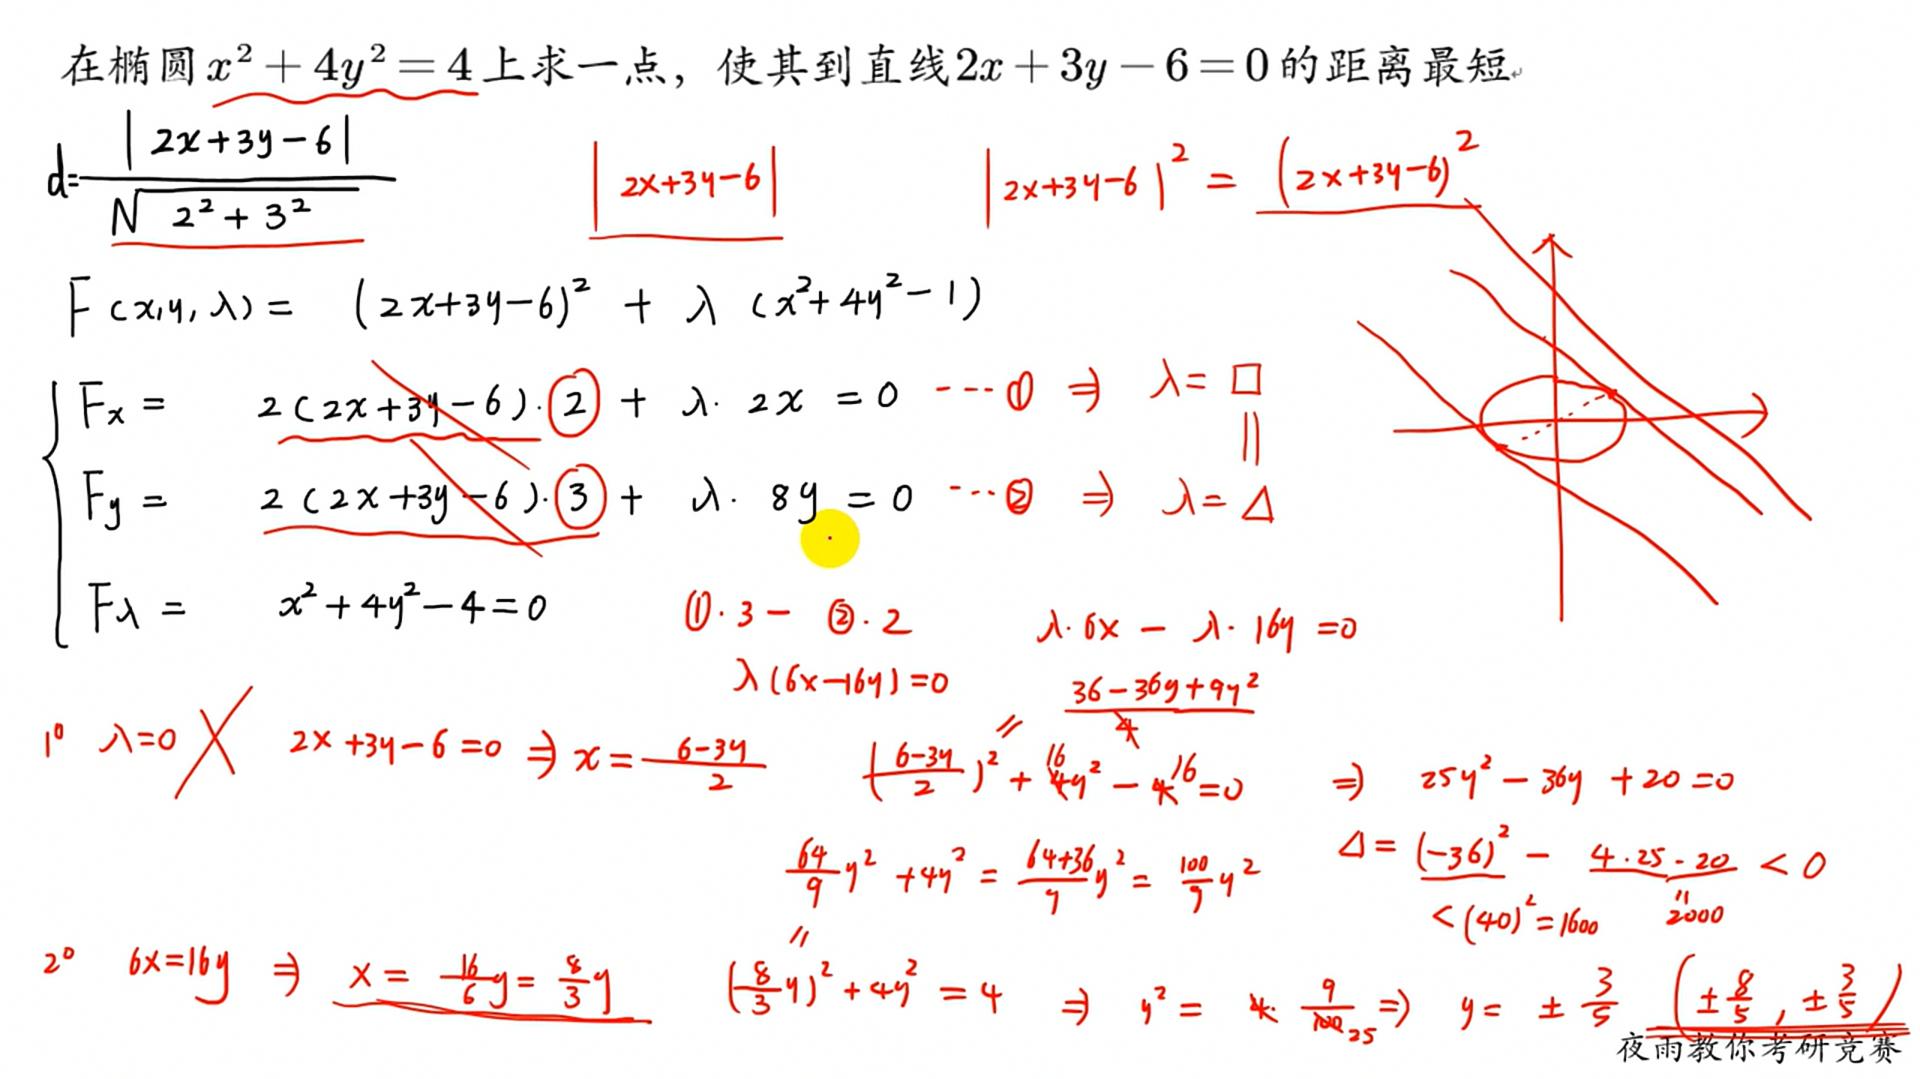 在椭圆 x² + 4y² = 4 上求一点，使其到直线 2x + 3y − 6 = 0 的距离最短
d = |2x+3y−6| / √(2²+3²)
|2x+3y−6|
|2x+3y−6|² = (2x+3y−6)²
F(x,y,λ) = (2x+3y−6)² + λ(x²+4y²−1)
Fx = 2(2x+3y−6)·2 + λ·2x = 0 ---① ⇒ λ = □
||
Fy = 2(2x+3y−6)·3 + λ·8y = 0 ---② ⇒ λ = △
Fλ = x²+4y²−4=0
①·3 − ②·2
λ·6x − λ·16y = 0
λ(6x−16y)=0
(36−36y+9y²)/4
1° λ=0 ╳ 2x+3y−6=0 ⇒ x = (6−3y)/2
((6−3y)/2)² + 16 4y² − 4 16 = 0 ⇒ 25y² − 36y + 20 = 0
Δ = (−36)² − 4·25·20 < 0
< (40)² = 1600
2000
64/9 y² + 4y² = (64+36)/9 y² = 100/9 y²
2° 6x=16y ⇒ x = 16/6 y = 8/3 y
(8/3 y)² + 4y² = 4 ⇒ y² = 4· 9/100 25 ⇒ y = ± 3/5 (± 8/5 , ± 3/5)
夜雨教你考研竞赛